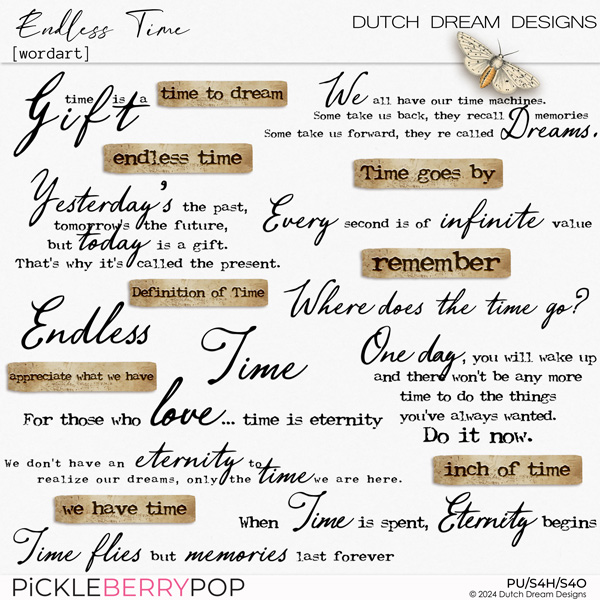 Endless Time
[wordart]
DUTCH DREAM DESIGNS
time is a
Gift
time to dream
We all have our time machines.
Some take us back, they recall memories
Some take us forward, they re called Dreams.
endless time
Time goes by
Yesterday's the past,
tomorrow's the future,
but today is a gift.
That's why it's called the present.
Every second is of infinite value
remember
Definition of Time
Where does the time go?
Endless
Time
One day, you will wake up
and there won't be any more
time to do the things
you've always wanted.
Do it now.
appreciate what we have
For those who love... time is eternity
We don't have an eternity to
realize our dreams, only the time we are here.
inch of time
we have time
When Time is spent, Eternity begins
Time flies but memories last forever
PiCKLEBERRYPOP
PU/S4H/S4O
© 2024 Dutch Dream Designs